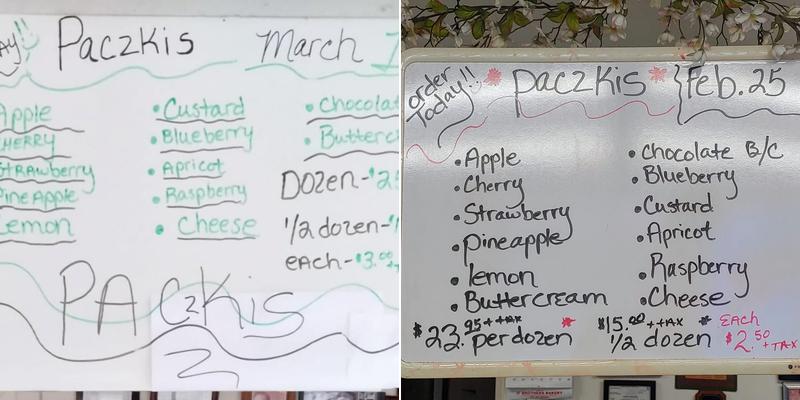 Paczkis March
Apple
CHERRY
Strawberry
PineApple
Lemon
• Custard
• Blueberry
• Apricot
• Raspberry
• Cheese
• Chocolat
• Butterc
Dozen-$2
1/2 dozen-
each-$3.00
PACzKis
order Today!!
paczkis
Feb. 25
• Apple
• Cherry
• Strawberry
• pineapple
• lemon
• Buttercream
• Chocolate B/C
• Blueberry
• Custard
• Apricot
• Raspberry
• Cheese
$23.95 + tax per dozen
$15.00 + tax 1/2 dozen
EACH $2.50 + TAX